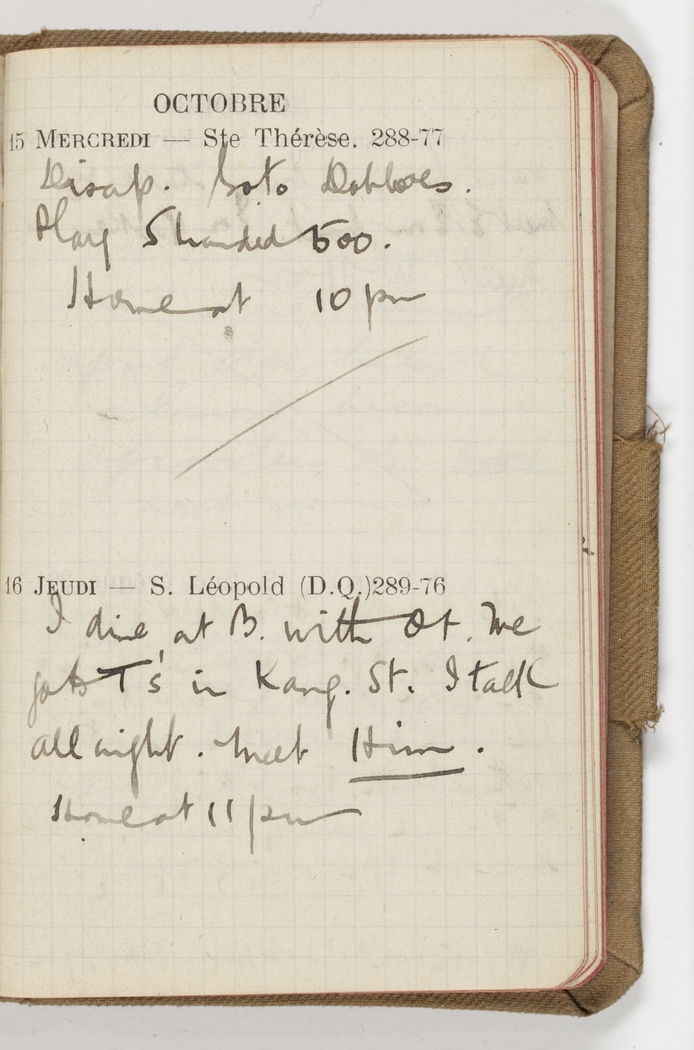 OCTOBRE
15 MERCREDI — Ste Thérèse. 288-77
Disap. Go to
Play 5 handed 500.
Home at 10 pm
16 JEUDI — S. Léopold (D.Q.) 289-76
I dine at B. with Ot. We
go to T's in Kang. St. I talk
all night. Meet Him.
Home at 11 pm